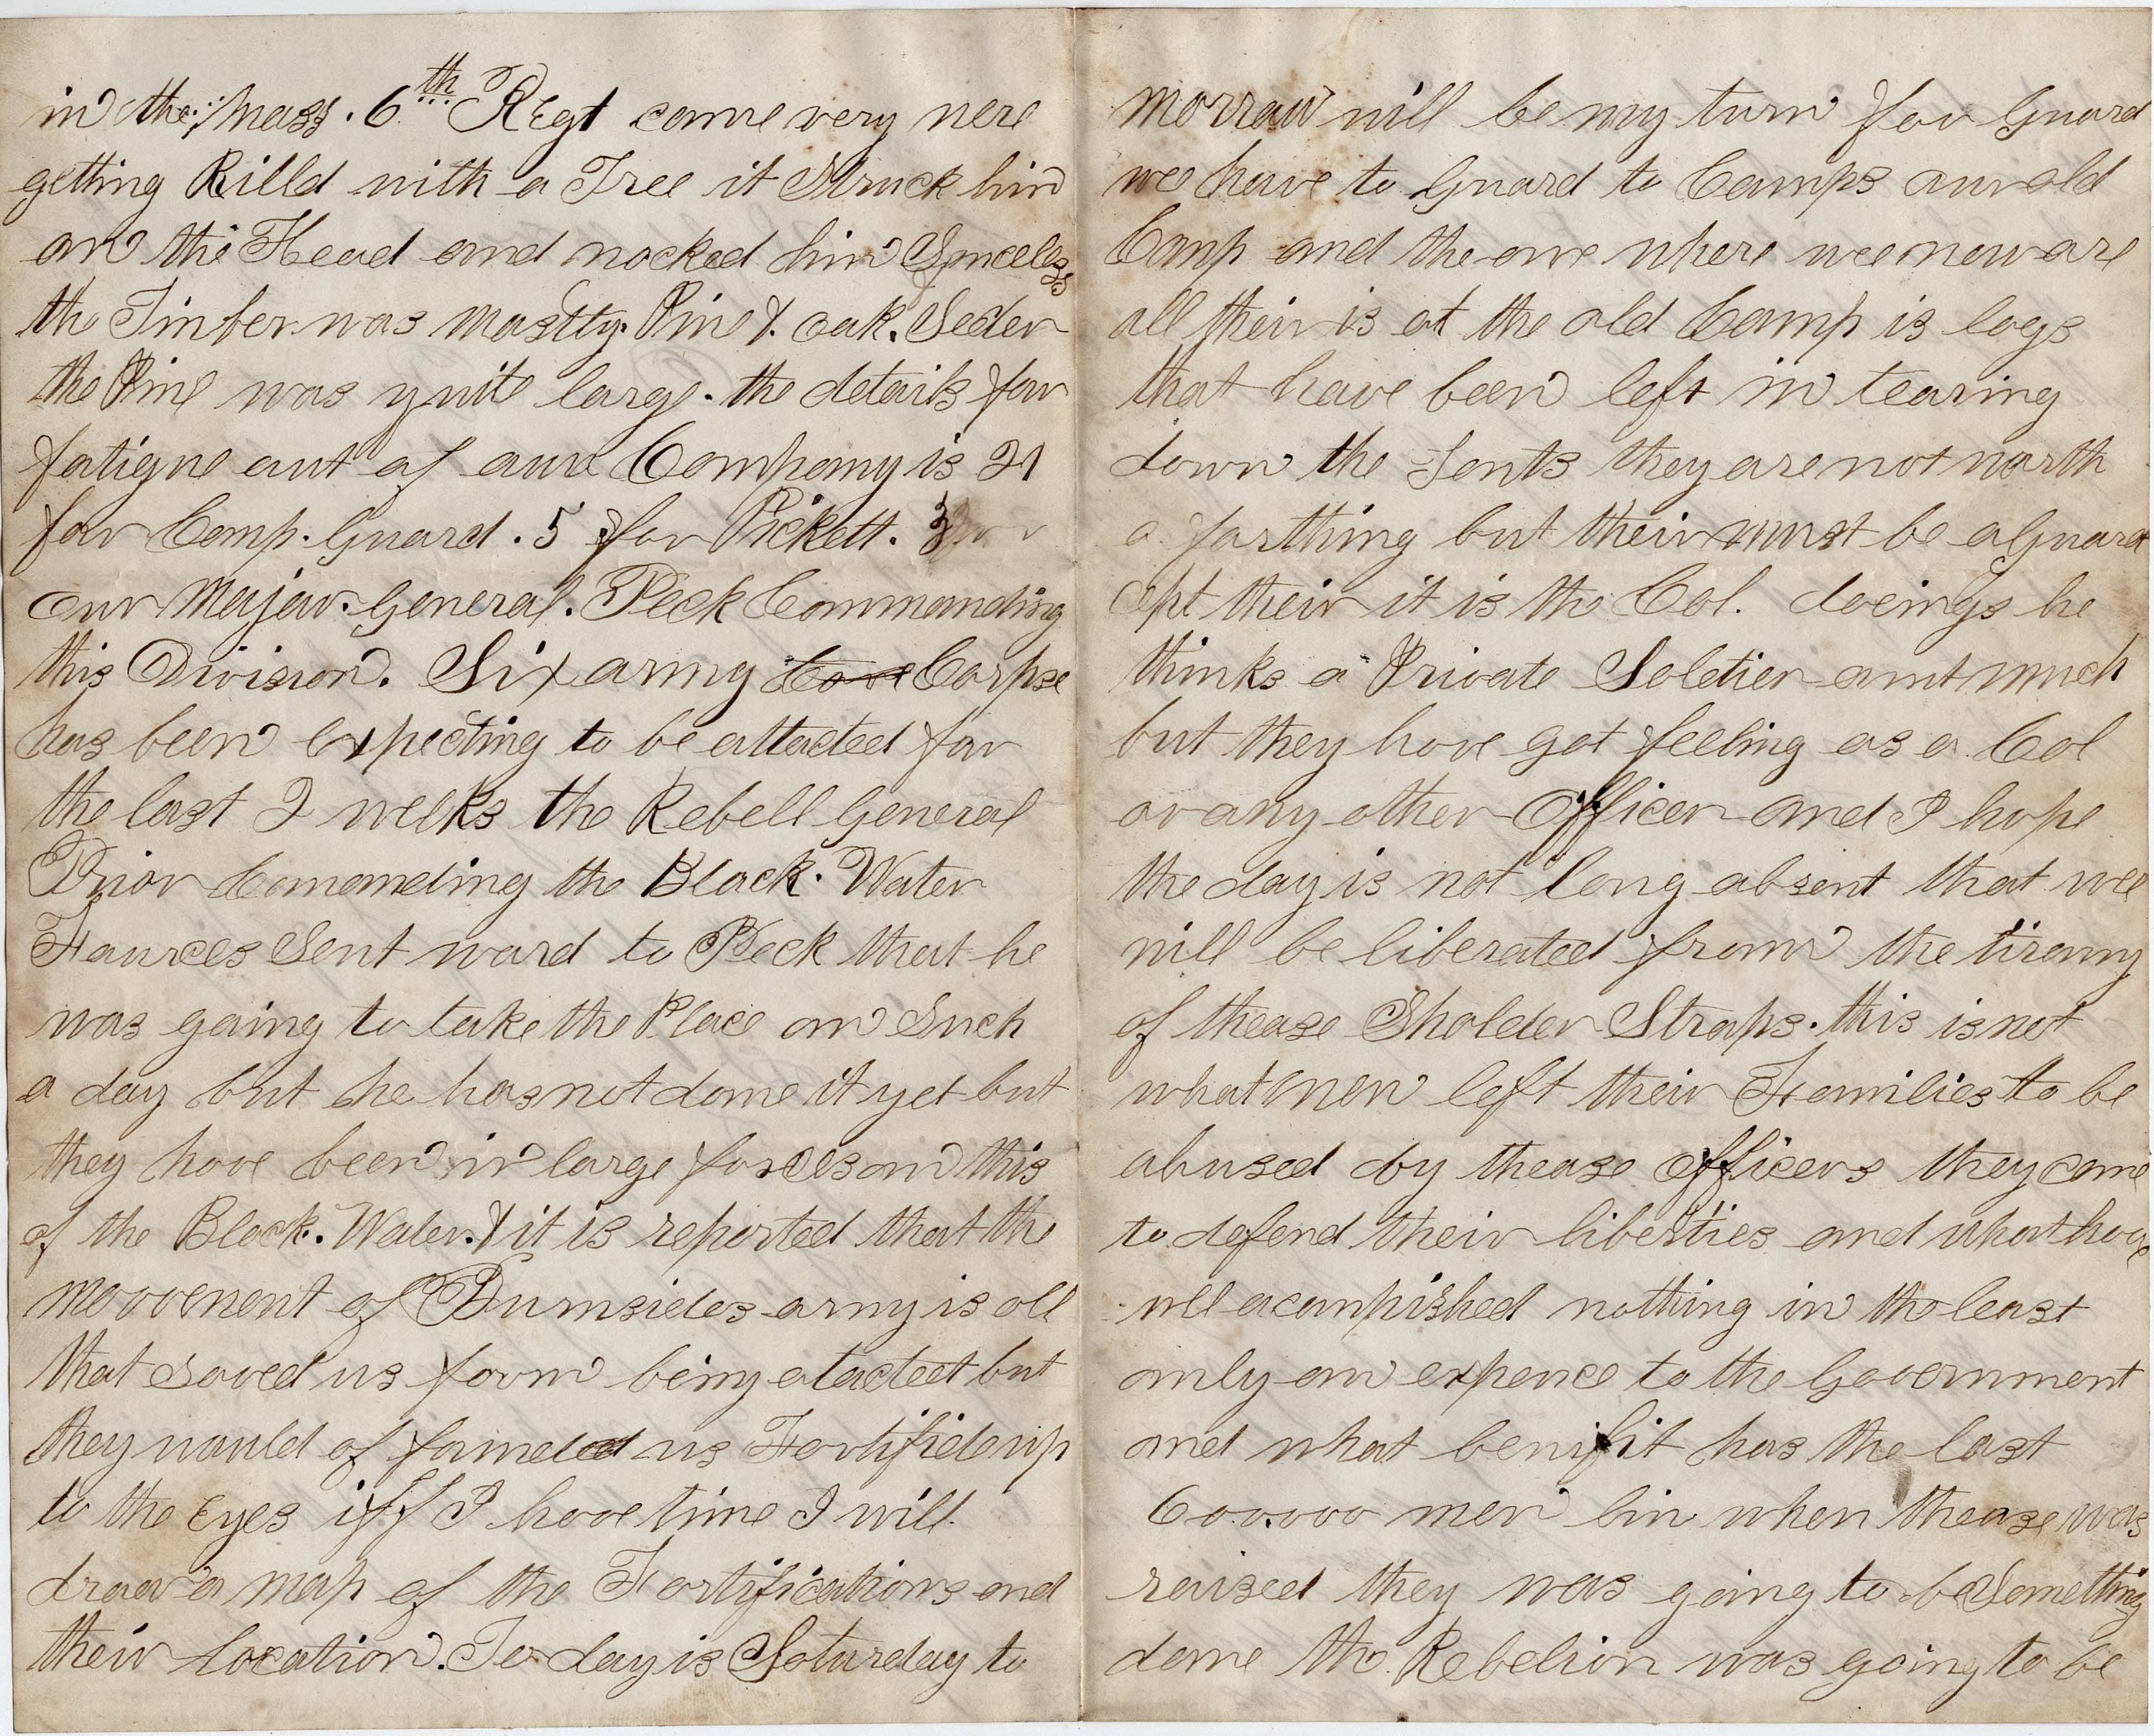 in the Mass. 6th Regt come very nere
getting Killd with a Tree it Struck him
on the Head and nocked him Senceless
the Timber was mostly. Pine & oak. Seder
the Pine was quite large. the details for
fatigue out of our Company is 21
for Camp. Guard. 5 for Pickett. 3
our Major. General. Peck Commanding
this Division. Six army Corpse
has been expecting to be attacted for
the last 2 weeks the Rebell General
Prior Comanding the Black. Water
Fources Sent word to Peck that he
was going to take the Place on Such
a day but he has not done it yet but
they have been in large forces on this
of the Black. Water. & it is reported that the
moovenent of Burnsides army is all
that saved us form being atacted but
they would of found us Fortifide up
to the Eyes iff I have time I will
draw a map of the Fortifications and
their Location. To day is Saturday to
morrow will be my turn for Guard
wee have to Guard to Camps our old
Camp and the one where wee now are
all their is at the old Camp is logs
that have been left in tearing
down the Tents they are not worth
a farthing but their must be a Guard
cept their it is the Col. doeings he
thinks a Private Soldier aint much
but they have got feeling as a Col
or any other Officer and I hope
the day is not long absent that wee
will be liberated from the tirany
of thease Sholder Straps. this is not
what men left their Families to be
abused by thease officers they come
to defend their liberties and what have
wee acompished nothing in the least
only an expence to the Government
and what benifit has the last
600.000 men bin when thease was
raised they was going to be Something
done the Rebelion was going to be